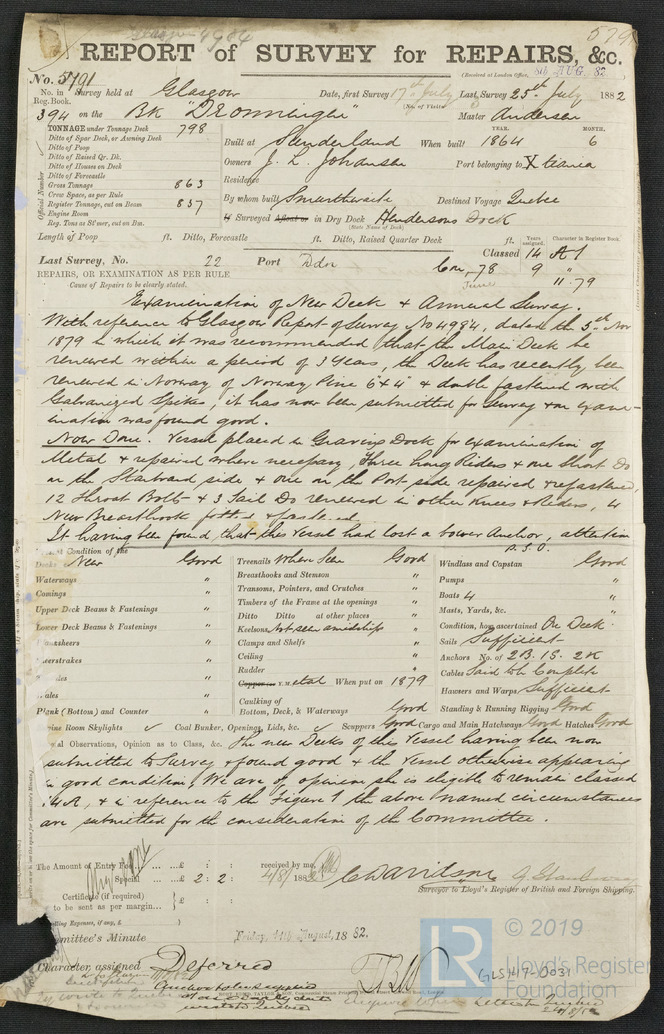 Glasgow 4984
579
REPORT of SURVEY for REPAIRS, &c.
(Received at London Office, 8th AUG. 82
No. 5791
No. in Reg. Book. Survey held at Glasgow Date, first Survey 17th July Last Survey 25th July 1882
(No. of Visits 3
394 on the Bk "Dronningen" Master Andersen
TONNAGE under Tonnage Deck 798
Ditto of Spar Deck, or Awning Deck
Ditto of Poop
Ditto of Raised Qr. Dk.
Ditto of Houses on Deck
Ditto of Forecastle
Gross Tonnage 863
Crew Space, as per Rule
Register Tonnage, cut on Beam 837
Engine Room
Reg. Tons as St'mer, cut on Bm.
Official Number
Built at Sunderland When built YEAR. 1864 MONTH. 6
Owners J. L. Johansen Port belonging to X tiania
Residence
By whom built Smurthwaite Destined Voyage Quebec
If Surveyed Afloat or in Dry Dock Hendersons Dock
(State Name of Dock)
Length of Poop ft. Ditto, Forecastle ft. Ditto, Raised Quarter Deck ft.
Years assigned. Character in Register Book.
Classed 14 A 1
Last Survey, No. 22 Port Ldn Con, 78 9 "
June 11.79
REPAIRS, OR EXAMINATION AS PER RULE
Cause of Repairs to be clearly stated.
Examination of New Deck & Annual Survey.
With reference to Glasgow Report of Survey No 4984, dated the 5th Nov
1879 in which it was recommended that the Main Deck be
renewed within a period of 3 Years, the Deck has recently been
renewed in Norway of Norway Pine 6 x 4" & double fastened with
Galvanized Spikes, it has now been submitted for Survey & on exam-
ination was found good.
Now Done. Vessel placed in Graving Dock for examination of
Metal & repaired where necessary, Three Long Riders & one Short Do
on the Starboard side & one on the Port side repaired & refastened,
12 Throat Bolts & 3 Tail Do renewed in other Knees & Riders, 4
New Breasthook fitted & fastened
It having been found that this Vessel had lost a bower Anchor, attention
P.T.O.
Present Condition of the
Decks New Good
Waterways "
Comings "
Upper Deck Beams & Fastenings "
Lower Deck Beams & Fastenings "
Planksheers "
Sheerstrakes "
Plank (Bottom) and Counter "
Treenails Where Seen Good
Breasthooks and Stemson "
Transoms, Pointers, and Crutches "
Timbers of the Frame at the openings "
Ditto Ditto at other places "
Keelsons Not seen amidships "
Clamps and Shelfs "
Ceiling "
Rudder "
Copper or Y.M. etal When put on 1879
Caulking of Bottom, Deck, & Waterways Good Good
Windlass and Capstan Good
Pumps "
Boats 4 "
Masts, Yards, &c. "
Condition, how ascertained On Deck
Sails Sufficient
Anchors No. of 2B. 1S. 2K
Cables Said to be Complete
Hawsers and Warps Sufficient
Standing & Running Rigging Good
Engine Room Skylights ✓ Coal Bunker, Openings, Lids, &c. ✓ Scuppers Good Cargo and Main Hatchways Good Hatches Good
General Observations, Opinion as to Class, &c. The new Decks of this Vessel having been now
submitted to Survey & found good & the Vessel otherwise appearing
in good condition, We are of opinion she is eligible to remain classed
14 A, & in reference to the Figure 1 the above named circumstances
are submitted for the consideration of the Committee.
The Amount of Entry Fee ... £ : :
Special ... £ 2 : 2 :
received by me, 4/8/1882
Certificate (if required) to be sent as per margin... £ : :
(Travelling Expenses, if any, £
C Davidson
Surveyor to Lloyd's Register of British and Foreign Shipping.
Committee's Minute Friday, 11th August, 1882.
Character assigned Deferred
© 2019
LR
Lloyd's Register Foundation
GLS149-0031